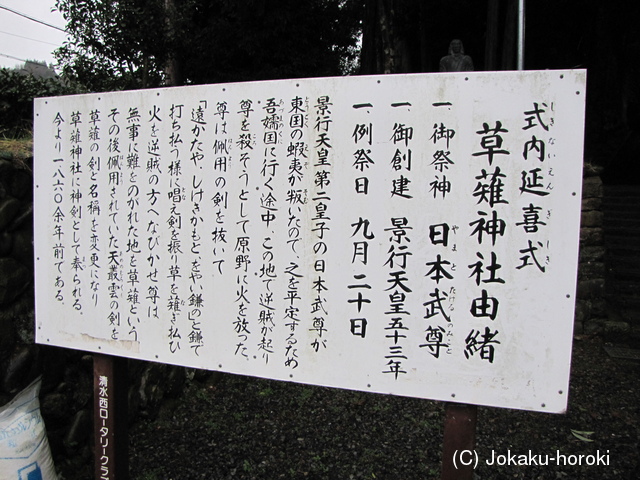 式内延喜式
しきないえんぎしき
草薙神社由緒
一、御祭神 日本武尊
やまとたけるのみこと
一、御創建 景行天皇五十三年
一、例祭日 九月二十日
景行天皇第二皇子の日本武尊が
東国の蝦夷が叛いたので之を平定するため
吾嬬国に行く途中、この地で逆賊が起り
尊を殺そうとして原野に火を放った。
尊は佩用の剣を抜いて
「遠かたや、しげきかもと、をやい鎌の」と鎌で
打ち払う様に唱え剣を振り草を薙ぎ払ひ
火を逆賊の方へなびかせ尊は
無事に難をのがれた地を草薙という
その後佩用されていた天叢雲の剣を
草薙の剣と名称を変更になり
草薙神社に神剣として奉られる。
今より一八六〇余年前である。
清水西ロータリークラブ
(C) Jokaku-horoki